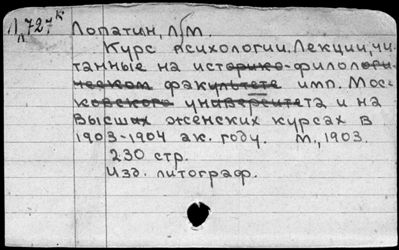 Л 727 к
Лопатин, Л М.
Курс психологии. Лекции, чи-
танные на историко-филологи-
ческом факультете имп. Мос-
ковского университета и на
Высших женских курсах в
1903-1904 ак. году. М., 1903.
230 стр.
Изд. литограф.